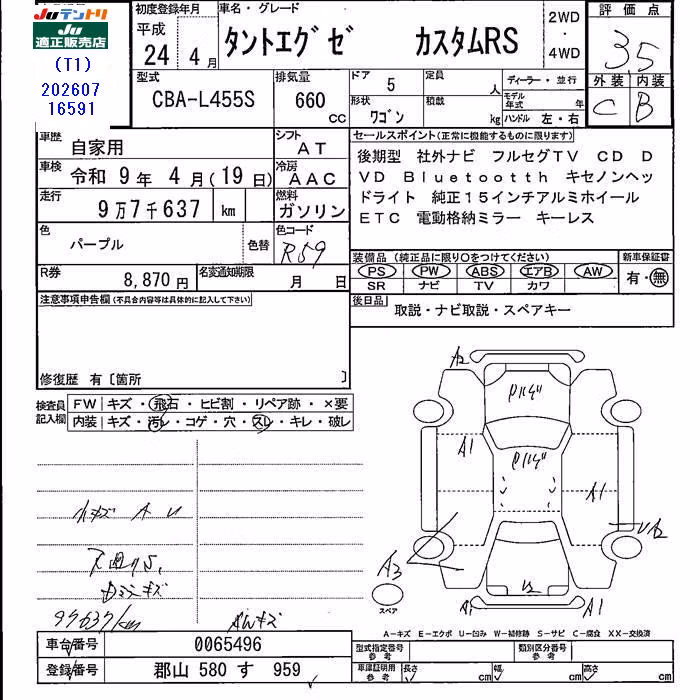 Juテントリ
Ju
適正販売店
(T1)
202607
16591
初度登録年月
平成
24年4月
車名・グレード
タントエグゼ カスタムRS
2WD
・
4WD
評価点
35
外装 内装
C B
型式
CBA-L455S
排気量
660
CC
ドア 5
形状
ワゴン
定員
人
積載
kg
ディーラー・並行
モデル年式 年
ハンドル 左・右
車歴
自家用
シフト
AT
車検
令和 9年 4月(19日)
冷房
AAC
走行
9万7千637 km
燃料
ガソリン
色
パープル
色替
色コード
R59
R券
8,870円
名変通知期限
月 日
セールスポイント(正常に機能するものに限ります)
後期型 社外ナビ フルセグTV CD D
VD Bluetootth キセノンヘッ
ドライト 純正15インチアルミホイール
ETC 電動格納ミラー キーレス
装備品(純正品に限り○をつけてください)
PS PW ABS エアB AW
SR ナビ TV カワ
新車保証書
有・無
後日品
取説・ナビ取説・スペアキー
注意事項申告欄(不具合内容等は具体的に記入して下さい)
修復歴 有〔箇所 〕
検査員
記入欄
FW キズ・飛石・ヒビ割・リペア跡・×要
内装 キズ・汚レ・コゲ・穴・スレ・キレ・破レ
小キズ A U
97637km
A2
A1
A1
A3
U2
A1
A1
スペア
A-キズ E-エクボ U-凹み W-補修跡 S-サビ C-腐食 XX-交換済
車台番号
0065496
登録番号
郡山 580 す 959
型式指定番号
参考
類別区分番号
参考
車庫証明用
参考
長さ cm
幅 cm
高さ cm